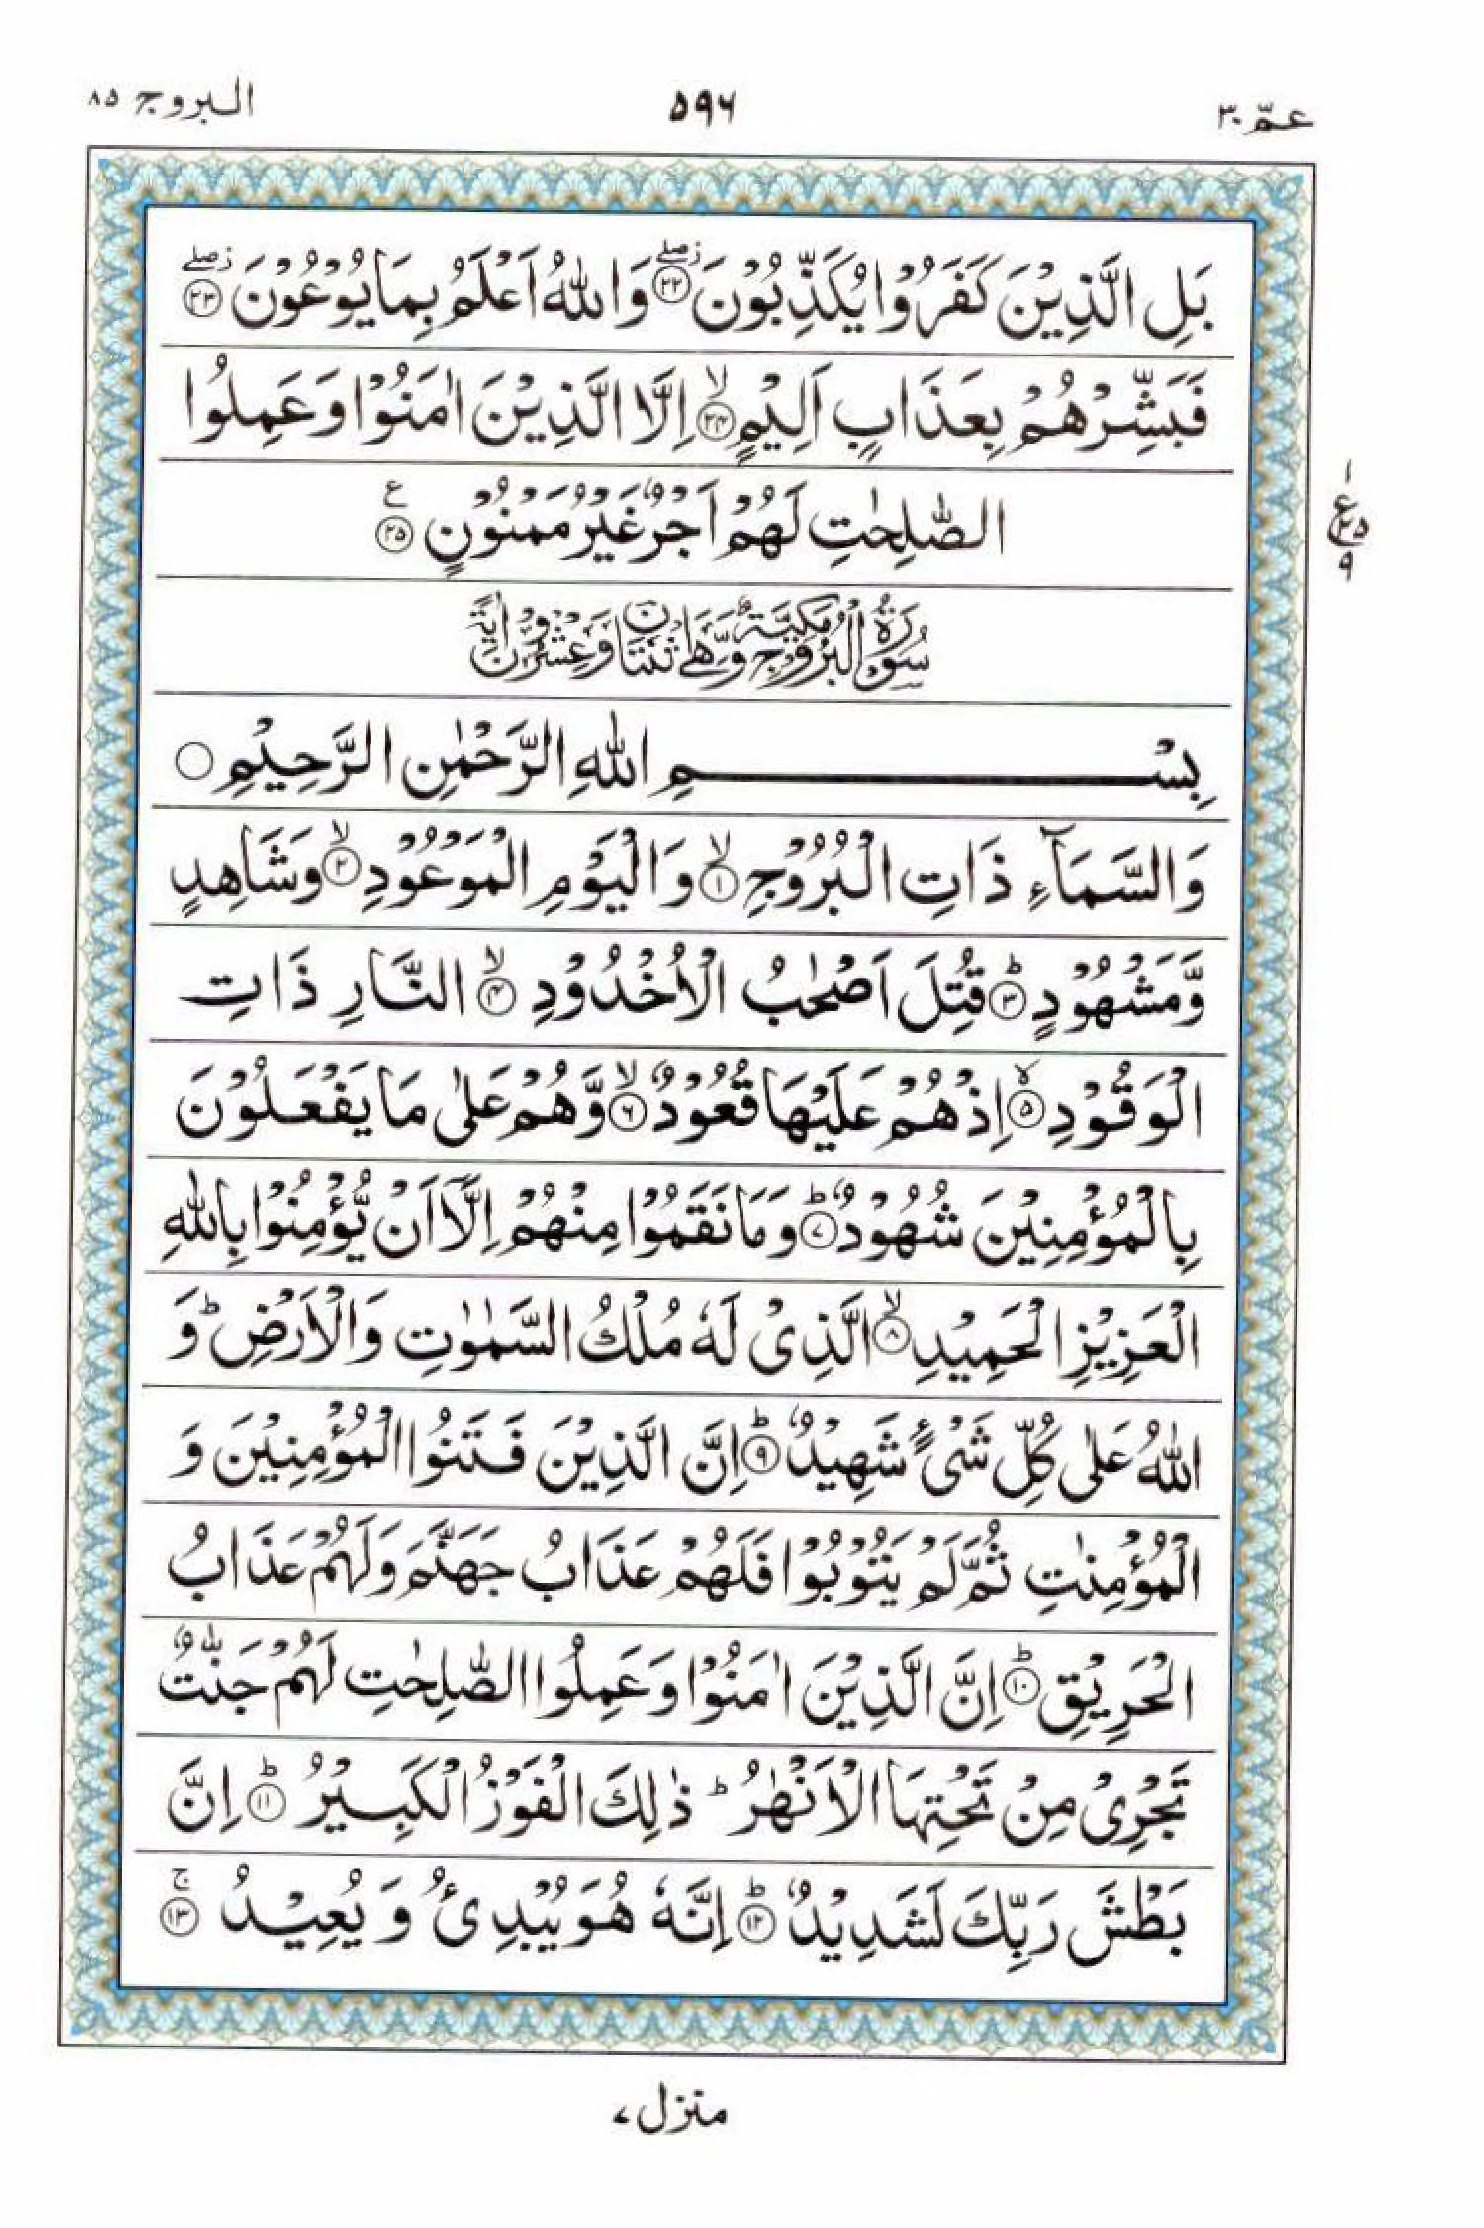 عمّ ۳۰ ۵۹۶ البروج ۸۵
بَلِ الَّذِیْنَ كَفَرُوْا یُكَذِّبُوْنَ ﴿۲۲﴾ۖ٘ وَاللّٰهُ اَعْلَمُ بِمَا یُوْعُوْنَ ﴿۲۳﴾ۖ٘
فَبَشِّرْهُمْ بِعَذَابٍ اَلِیْمٍ ﴿۲۴﴾ۙ اِلَّا الَّذِیْنَ اٰمَنُوْا وَعَمِلُوا
الصّٰلِحٰتِ لَهُمْ اَجْرٌ غَیْرُ مَمْنُوْنٍ ﴿۲۵﴾ع
۱ ع ۲۵ ۹
سُوْرَةُ الْبُرُوْجِ مَكِّیَّةٌ وَّهِیَ ثِنْتَانِ وَعِشْرُوْنَ اٰیَةً
بِسْمِ اللّٰهِ الرَّحْمٰنِ الرَّحِیْمِ
وَالسَّمَآءِ ذَاتِ الْبُرُوْجِ ﴿۱﴾ۙ وَالْیَوْمِ الْمَوْعُوْدِ ﴿۲﴾ۙ وَشَاهِدٍ
وَّمَشْهُوْدٍ ﴿۳﴾ؕ قُتِلَ اَصْحٰبُ الْاُخْدُوْدِ ﴿۴﴾ۙ النَّارِ ذَاتِ
الْوَقُوْدِ ﴿۵﴾ۙ اِذْ هُمْ عَلَیْهَا قُعُوْدٌ ﴿۶﴾ۙ وَّهُمْ عَلٰی مَا یَفْعَلُوْنَ
بِالْمُؤْمِنِیْنَ شُهُوْدٌ ﴿۷﴾ؕ وَمَا نَقَمُوْا مِنْهُمْ اِلَّاۤ اَنْ یُّؤْمِنُوْا بِاللّٰهِ
الْعَزِیْزِ الْحَمِیْدِ ﴿۸﴾ۙ الَّذِیْ لَهٗ مُلْكُ السَّمٰوٰتِ وَالْاَرْضِؕ وَ
اللّٰهُ عَلٰی كُلِّ شَیْءٍ شَهِیْدٌ ﴿۹﴾ؕ اِنَّ الَّذِیْنَ فَتَنُوا الْمُؤْمِنِیْنَ وَ
الْمُؤْمِنٰتِ ثُمَّ لَمْ یَتُوْبُوْا فَلَهُمْ عَذَابُ جَهَنَّمَ وَلَهُمْ عَذَابُ
الْحَرِیْقِ ﴿۱۰﴾ؕ اِنَّ الَّذِیْنَ اٰمَنُوْا وَعَمِلُوا الصّٰلِحٰتِ لَهُمْ جَنّٰتٌ
تَجْرِیْ مِنْ تَحْتِهَا الْاَنْهٰرُؕ ذٰلِكَ الْفَوْزُ الْكَبِیْرُ ﴿۱۱﴾ؕ اِنَّ
بَطْشَ رَبِّكَ لَشَدِیْدٌ ﴿۱۲﴾ؕ اِنَّهٗ هُوَ یُبْدِئُ وَ یُعِیْدُ ﴿۱۳﴾ۚ
منزل ۷